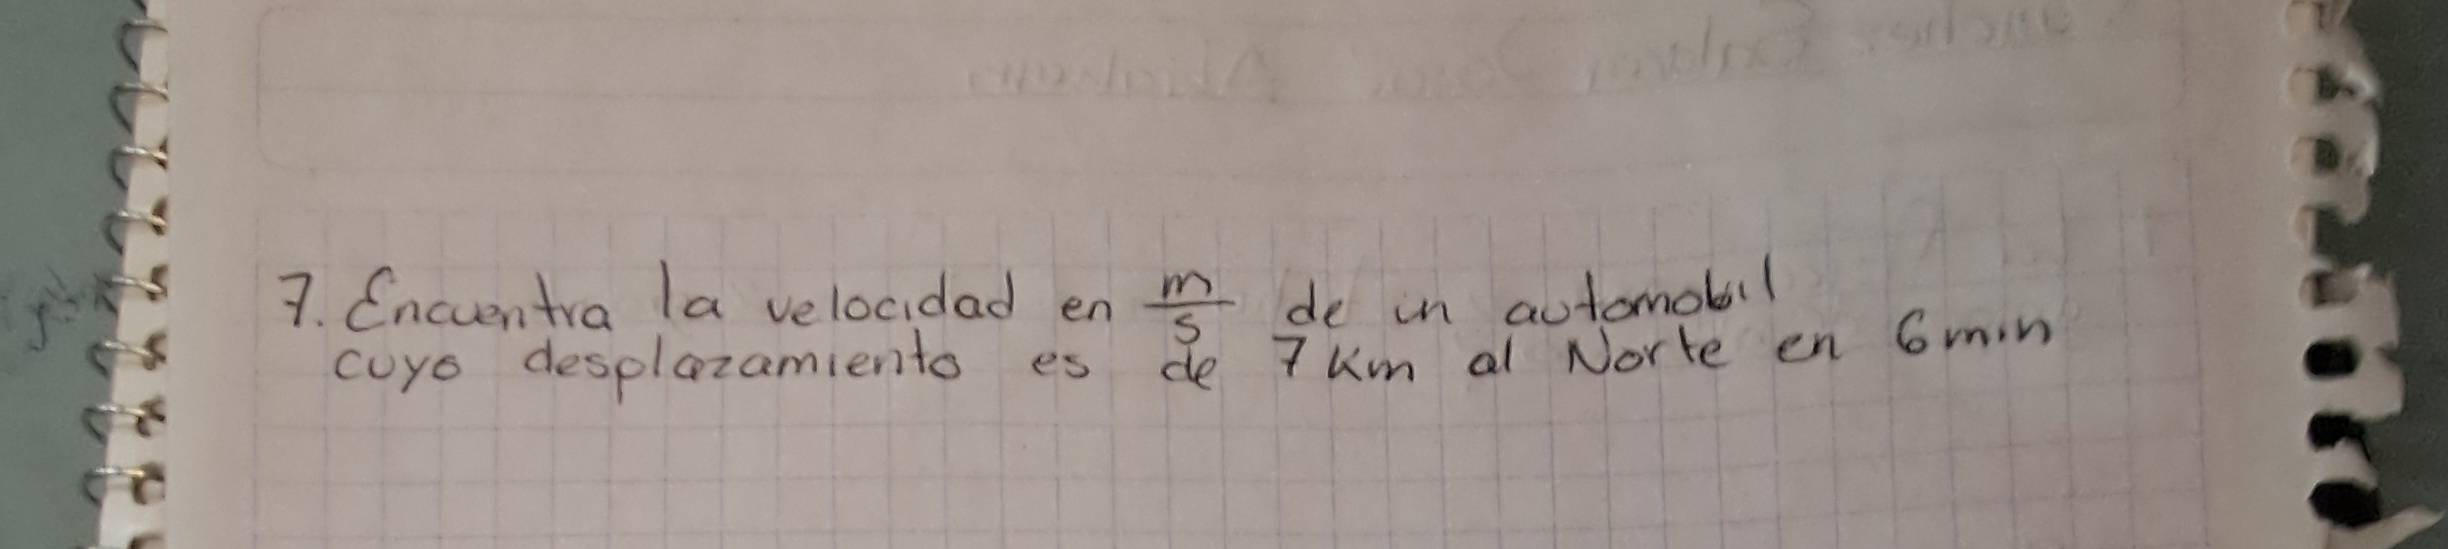 7. Encuentra la velocidad en m/s de un automobil
cuyo desplazamiento es de 7 Km al Norte en 6 min